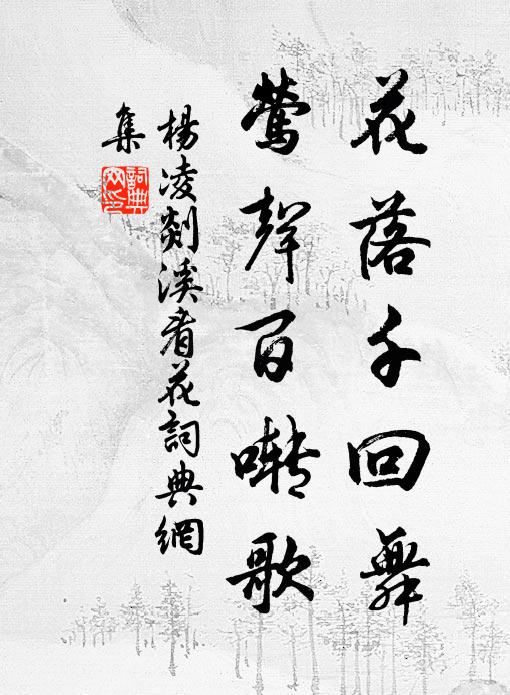 花落千回舞
鶯聲百囀歌
楊凌剡溪看花詞典網
集
詞典網印